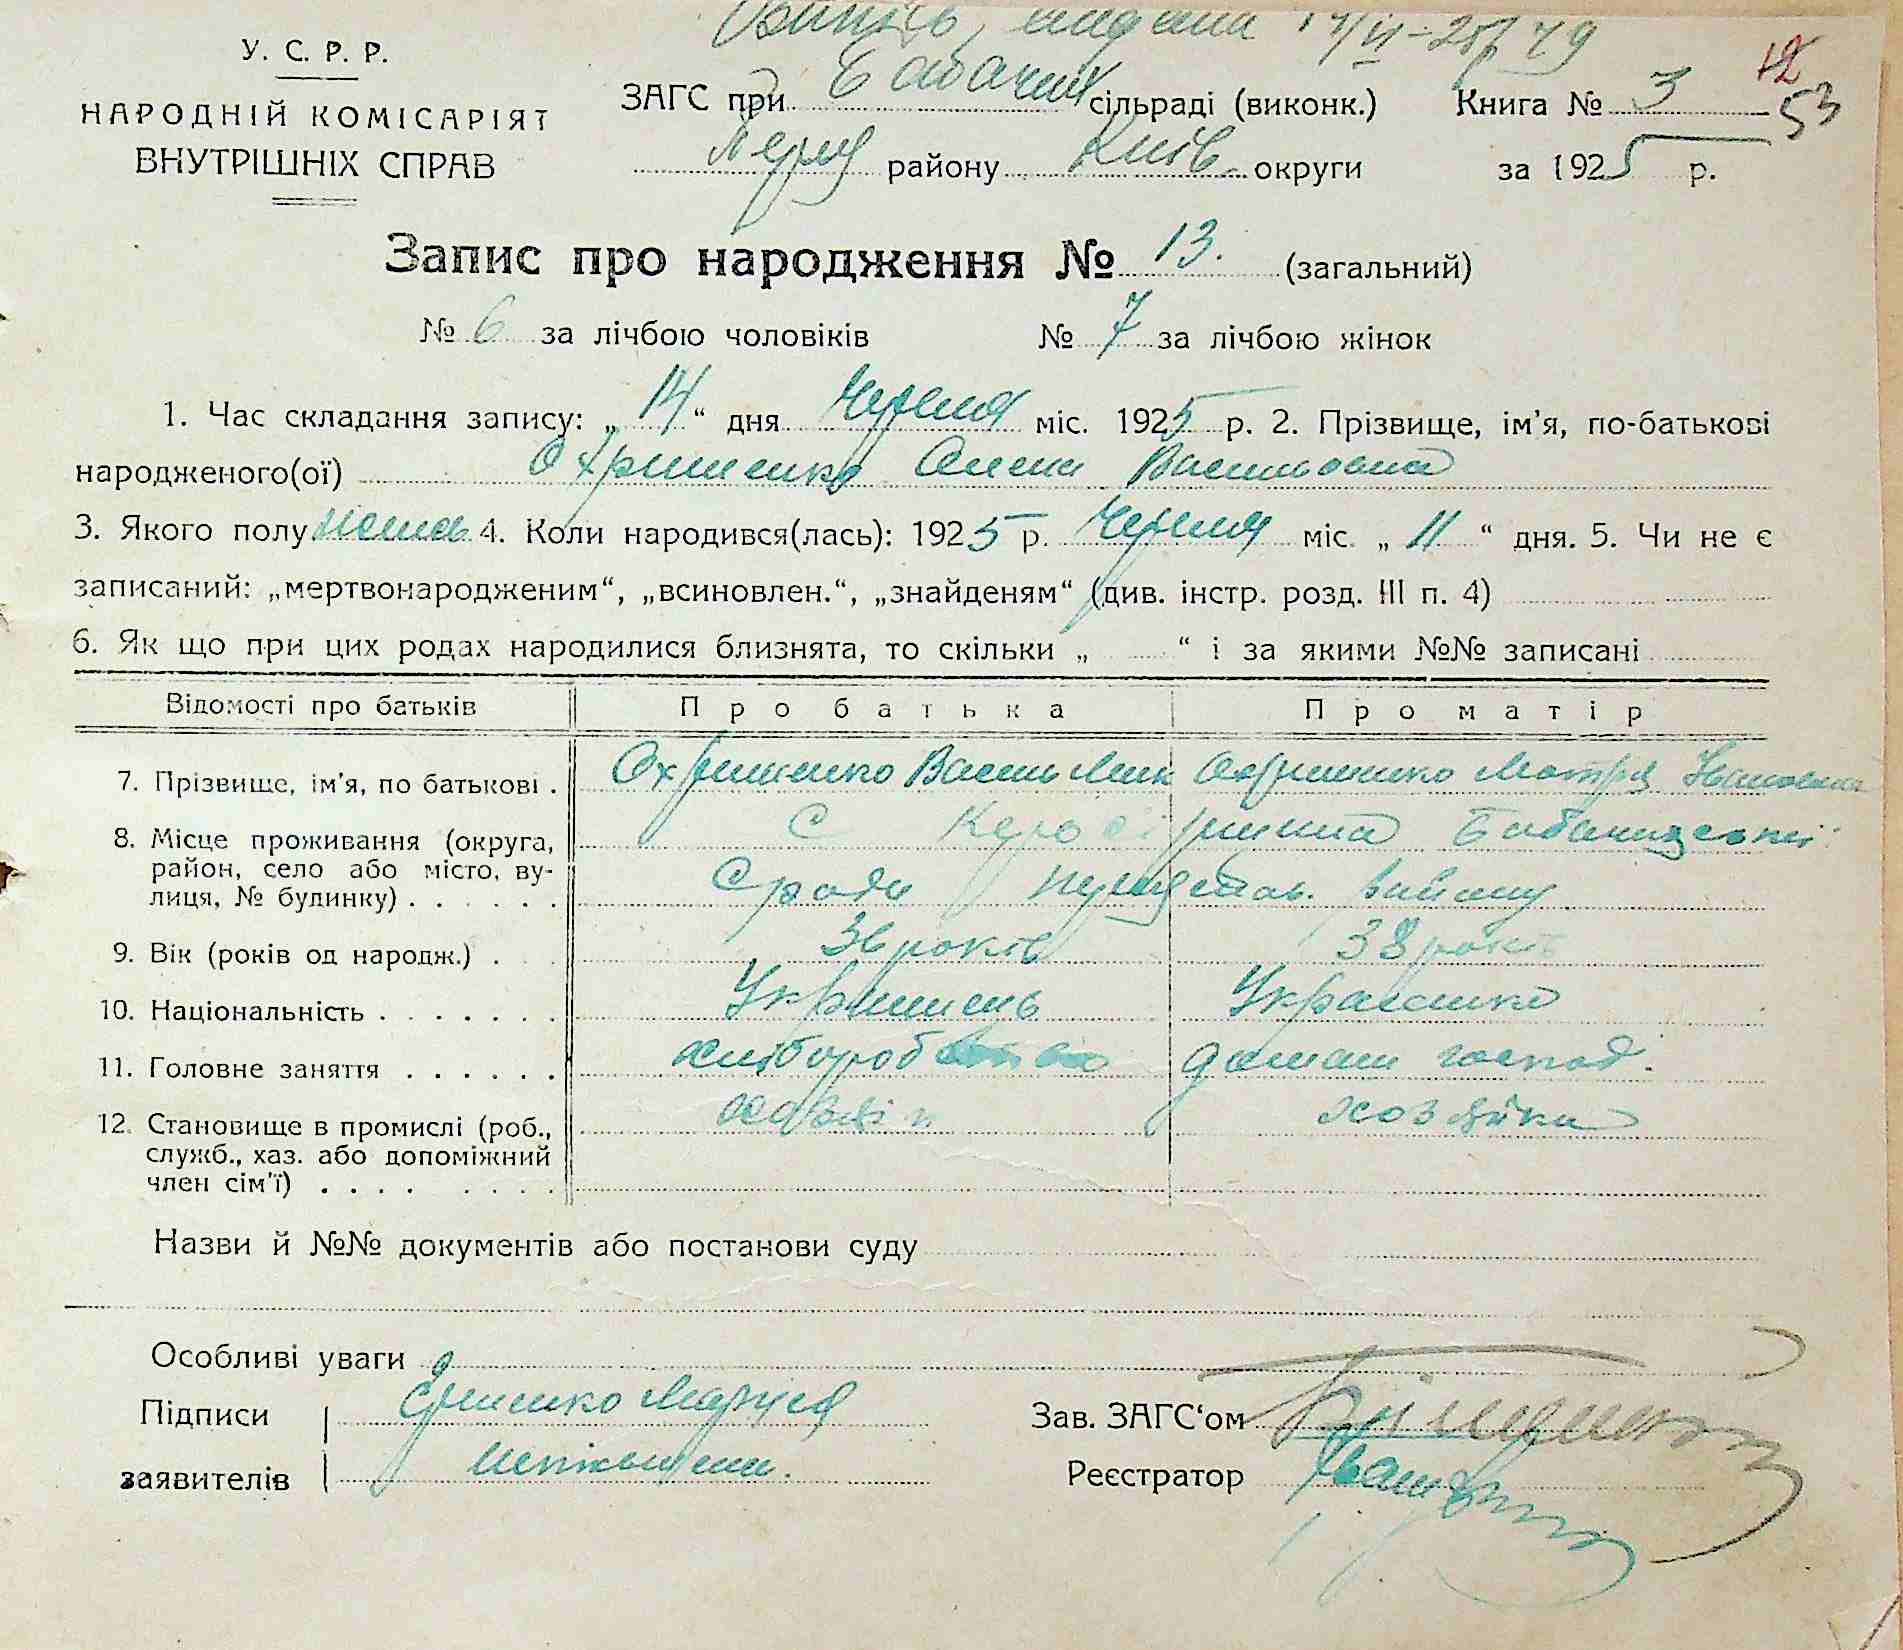 видана
У. С. Р. Р.
НАРОДНІЙ КОМІСАРІЯТ
ВНУТРІШНІХ СПРАВ
ЗАГС при сільраді (виконк.)
району Київ. округи
Книга № 3
12
53
за 1925 р.
Запис про народження № 13. (загальний)
№ 6 за лічбою чоловіків № 7 за лічбою жінок
1. Час складання запису: „14“ дня Червня міс. 1925 р. 2. Прізвище, ім'я, по-батькові
народженого(ої) Охрименко Олена Васильовна
3. Якого полу 4. Коли народився(лась): 1925 р. Червня міс. „11“ дня. 5. Чи не є
записаний: „мертвонародженим“, „всиновлен.“, „знайденям“ (див. інстр. розд. III п. 4)
6. Як що при цих родах народилися близнята, то скільки „ “ і за якими №№ записані
Відомості про батьків Про батька Про матір
7. Прізвище, ім'я, по батькові . Охрименко Василь Охрименко Мотря Івановна
8. Місце проживання (округа,
район, село або місто, ву-
лиця, № будинку) . . . . . .
С
С ради району
9. Вік (років од народж.) . 36 років 38 років
10. Національність . . . . . . . Українець Українка
11. Головне заняття . . . . . . хлібороб домаш господ.
12. Становище в промислі (роб.,
служб., хаз. або допоміжний
член сім'ї) . . . . . . . .
хозяїн хозяйка
Назви й №№ документів або постанови суду
Особливі уваги
Підписи
заявителів
Зав. ЗАГС‘ом
Реєстратор